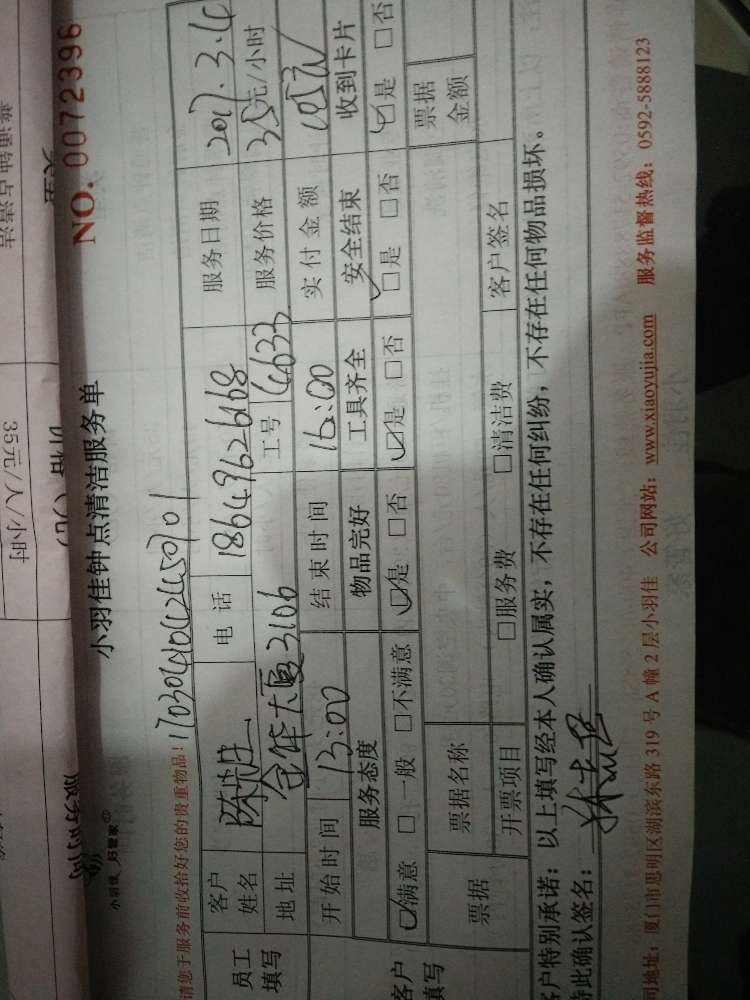 普通钟点清洁
35元/人/小时
价格（元）
服务时间
小羽佳 好管家
小羽佳钟点清洁服务单
NO. 0072396
请您于服务前收拾好您的贵重物品！
员工填写
客户姓名 陈先生 电话 18649626168 服务日期 2017.3.4
地址 金华大厦3106 工号 4633 服务价格 35元/小时
开始时间 13:00 结束时间 16:00 实付金额 105元
客户填写
服务态度 物品完好 工具齐全 安全结束 收到卡片
☑满意 □一般 □不满意 ☑是 □否 ☑是 □否 ☑是 □否 ☑是 □否
票据 票据名称 票据金额
开票项目 □服务费 □清洁费 客户签名
客户特别承诺：以上填写经本人确认属实，不存在任何纠纷，不存在任何物品损坏。
特此确认签名：
司地址：厦门市思明区湖滨东路 319 号 A 幢 2 层小羽佳 公司网站：www.xiaoyujia.com 服务监督热线：0592-5888123